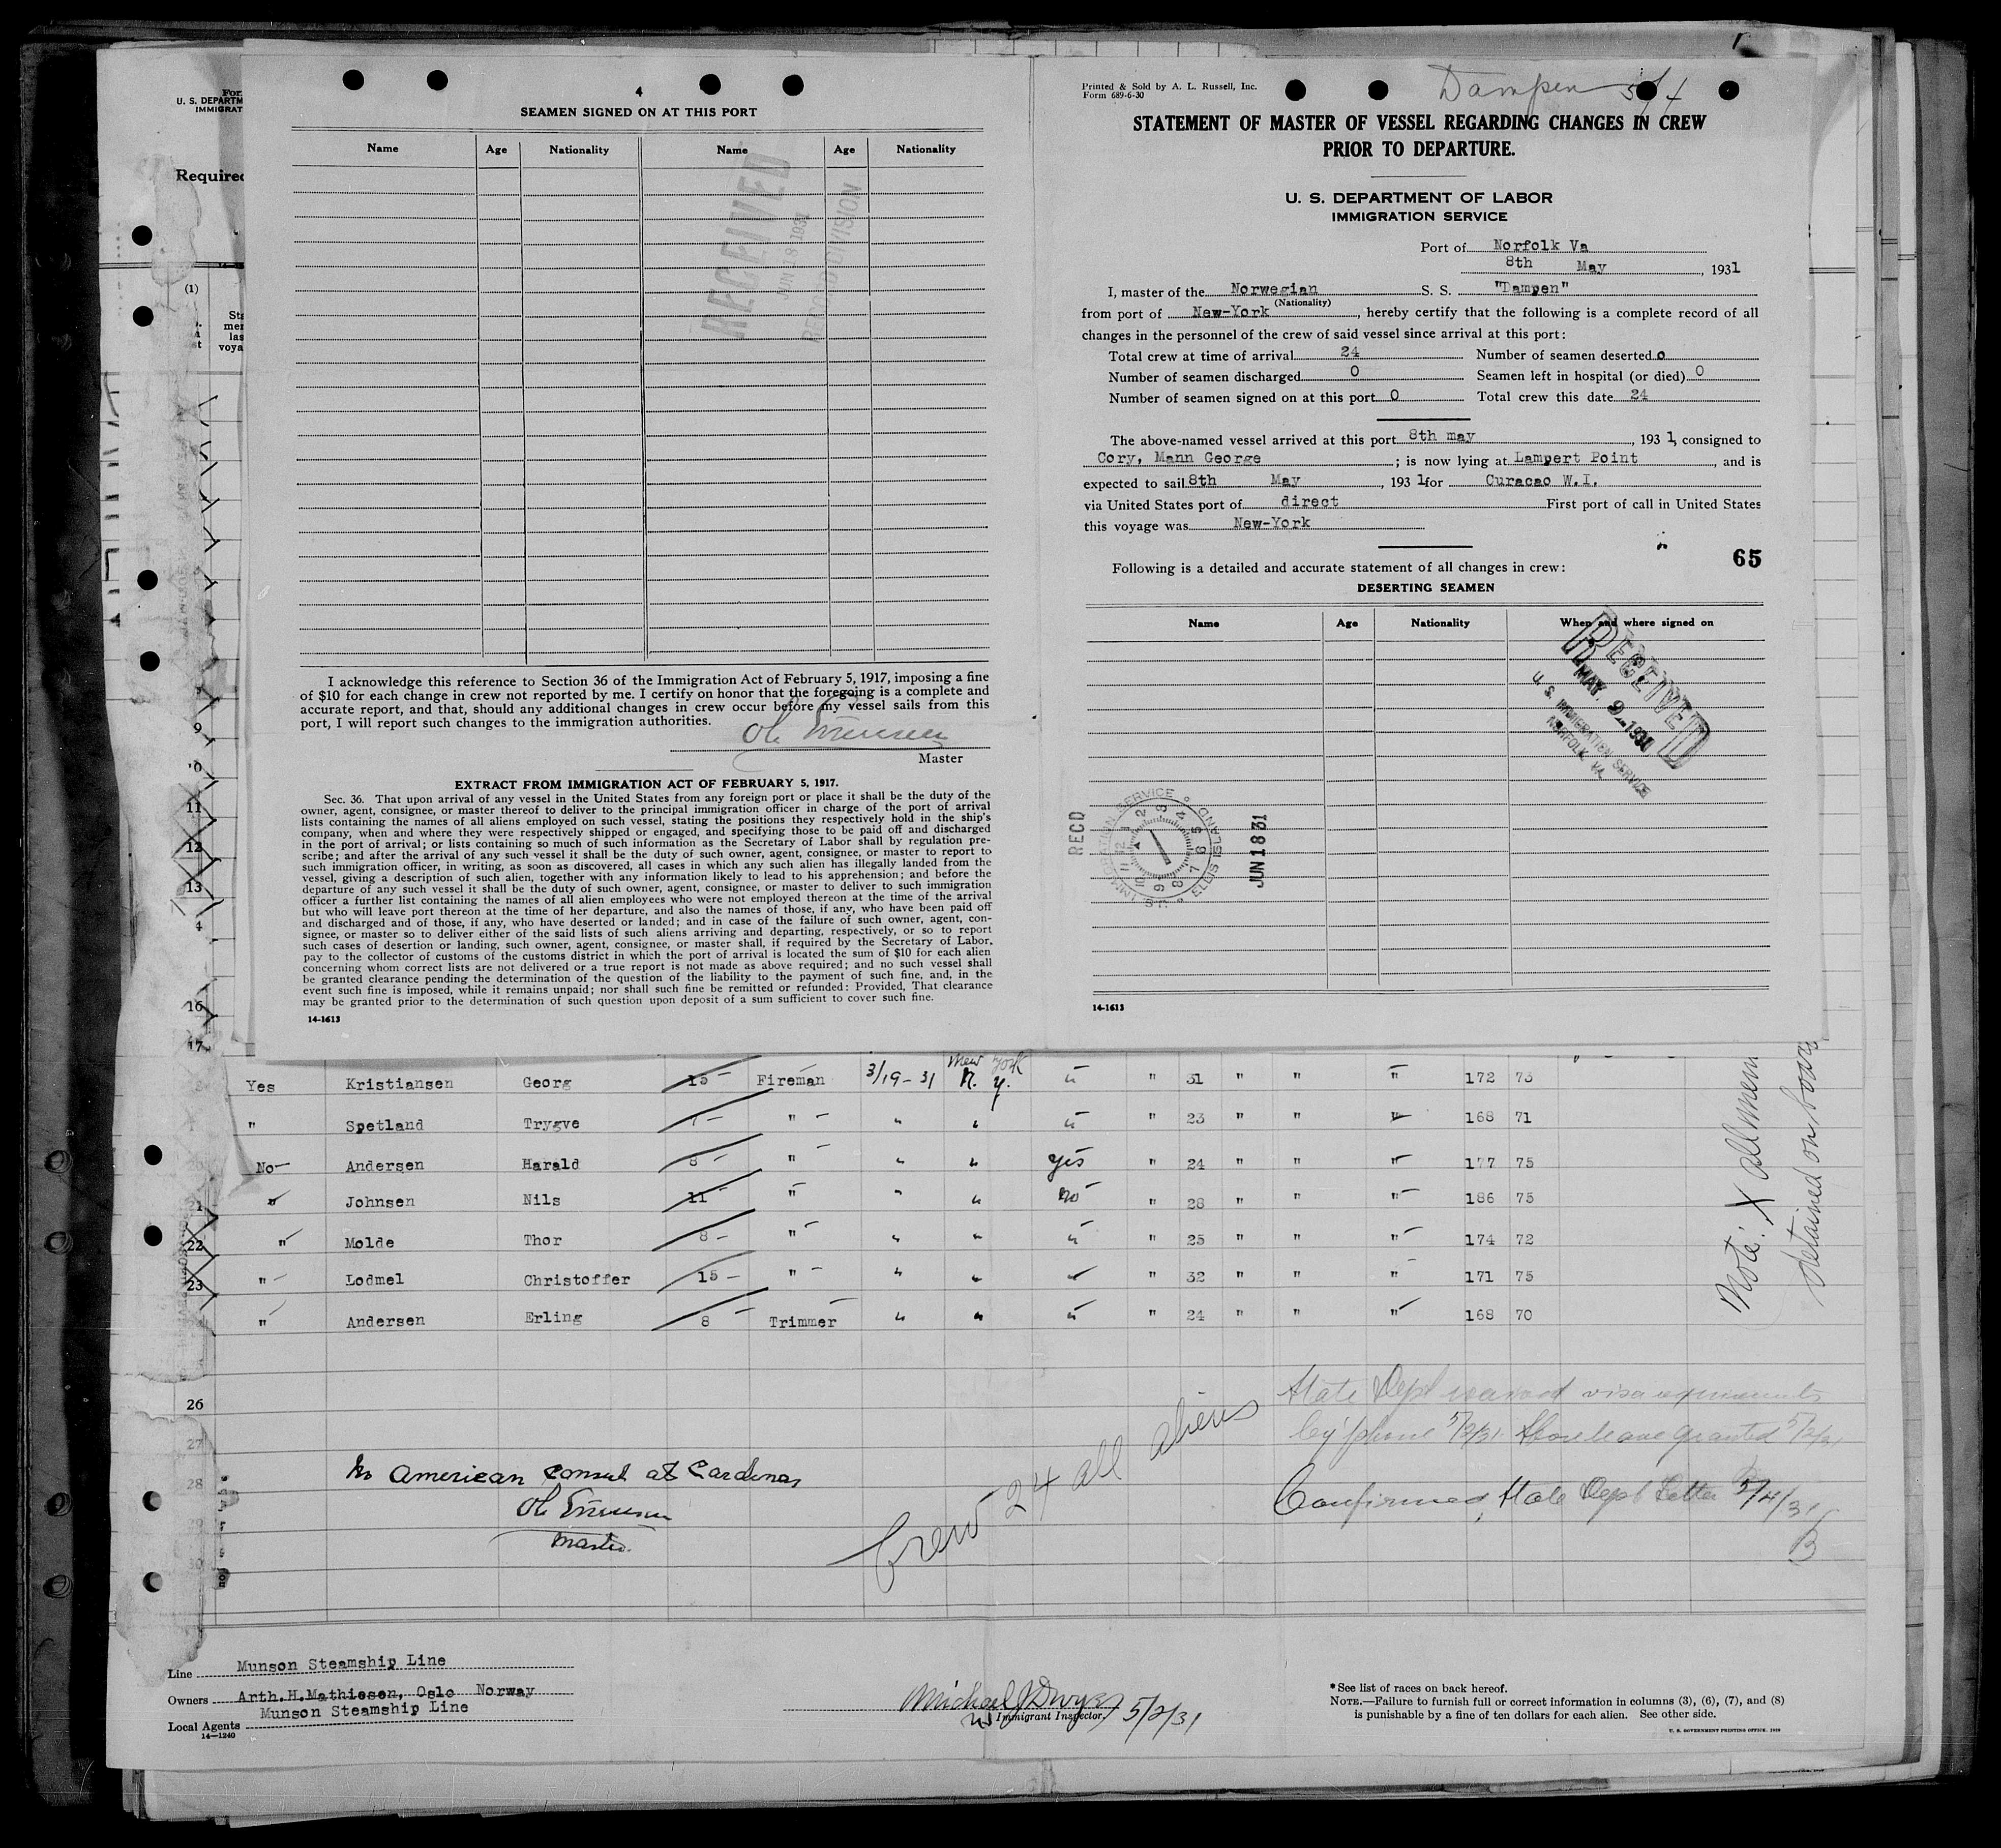 For
U. S. DEPARTM
IMMIGRAT
Required
(1)
4
SEAMEN SIGNED ON AT THIS PORT
Name Age Nationality Name Age Nationality
RECEIVED
JUN 18 1931
RECORD DIVISION
I acknowledge this reference to Section 36 of the Immigration Act of February 5, 1917, imposing a fine
of $10 for each change in crew not reported by me. I certify on honor that the foregoing is a complete and
accurate report, and that, should any additional changes in crew occur before my vessel sails from this
port, I will report such changes to the immigration authorities.
Master
EXTRACT FROM IMMIGRATION ACT OF FEBRUARY 5, 1917.
Sec. 36. That upon arrival of any vessel in the United States from any foreign port or place it shall be the duty of the
owner, agent, consignee, or master thereof to deliver to the principal immigration officer in charge of the port of arrival
lists containing the names of all aliens employed on such vessel, stating the positions they respectively hold in the ship's
company, when and where they were respectively shipped or engaged, and specifying those to be paid off and discharged
in the port of arrival; or lists containing so much of such information as the Secretary of Labor shall by regulation pre-
scribe; and after the arrival of any such vessel it shall be the duty of such owner, agent, consignee, or master to report to
such immigration officer, in writing, as soon as discovered, all cases in which any such alien has illegally landed from the
vessel, giving a description of such alien, together with any information likely to lead to his apprehension; and before the
departure of any such vessel it shall be the duty of such owner, agent, consignee, or master to deliver to such immigration
officer a further list containing the names of all alien employees who were not employed thereon at the time of the arrival
but who will leave port thereon at the time of her departure, and also the names of those, if any, who have been paid off
and discharged and of those, if any, who have deserted or landed; and in case of the failure of such owner, agent, con-
signee, or master so to deliver either of the said lists of such aliens arriving and departing, respectively, or so to report
such cases of desertion or landing, such owner, agent, consignee, or master shall, if required by the Secretary of Labor,
pay to the collector of customs of the customs district in which the port of arrival is located the sum of $10 for each alien
concerning whom correct lists are not delivered or a true report is not made as above required; and no such vessel shall
be granted clearance pending the determination of the question of the liability to the payment of such fine, and, in the
event such fine is imposed, while it remains unpaid; nor shall such fine be remitted or refunded: Provided, That clearance
may be granted prior to the determination of such question upon deposit of a sum sufficient to cover such fine.
14-1613
Printed & Sold by A. L. Russell, Inc.
Form 689-6-30
Dampen 5/4
STATEMENT OF MASTER OF VESSEL REGARDING CHANGES IN CREW
PRIOR TO DEPARTURE.
U. S. DEPARTMENT OF LABOR
IMMIGRATION SERVICE
Port of Norfolk Va
8th May, 1931
I, master of the Norwegian S. S. "Dampen"
(Nationality)
from port of New-York, hereby certify that the following is a complete record of all
changes in the personnel of the crew of said vessel since arrival at this port:
Total crew at time of arrival 24 Number of seamen deserted 0
Number of seamen discharged 0 Seamen left in hospital (or died) 0
Number of seamen signed on at this port 0 Total crew this date 24
The above-named vessel arrived at this port 8th may, 1931, consigned to
Cory, Mann George; is now lying at Lampert Point, and is
expected to sail 8th May, 1931 for Curacao W.I.
via United States port of direct First port of call in United States
this voyage was New-York
65
Following is a detailed and accurate statement of all changes in crew:
DESERTING SEAMEN
Name Age Nationality When and where signed on
RECEIVED
MAY 9 1931
U. S. IMMIGRATION SERVICE
NORFOLK VA.
RECD
U.S. IMMIGRATION SERVICE ELLIS ISLAND
JUN 18 31
14-1613
9
11
12
13
16
17
Yes Kristiansen Georg 15 Fireman 3/19-31 New York N. Y. " " 31 " " " 172 73
" Spetland Trygve 7 " " " " " 23 " " " 168 71
No Andersen Harald 8 " " " yes " 24 " " " 177 75
21 " Johnsen Nils 11 " " " no " 28 " " " 186 75
22 " Molde Thor 8 " " " " " 25 " " " 174 72
23 " Lodmel Christoffer 15 " " " " " 32 " " " 171 75
" Andersen Erling 8 Trimmer " " " " 24 " " " 168 70
Note: X all men
detained on board
26
27
28
29
30
State Dept waived visa requirements
by phone 5/2/31. Shore leave granted 5/2/31
Confirmed, State Dept Letter 5/4/31
No American Consul at Cardenas
Master.
Crew 24 all aliens
Line Munson Steamship Line
Owners Arth.H.Mathiesen, Oslo Norway
Local Agents Munson Steamship Line
14-1240
Michael J Dwyer 5/2/31
Immigrant Inspector.
*See list of races on back hereof.
NOTE.—Failure to furnish full or correct information in columns (3), (6), (7), and (8)
is punishable by a fine of ten dollars for each alien. See other side.
U. S. GOVERNMENT PRINTING OFFICE. 1929